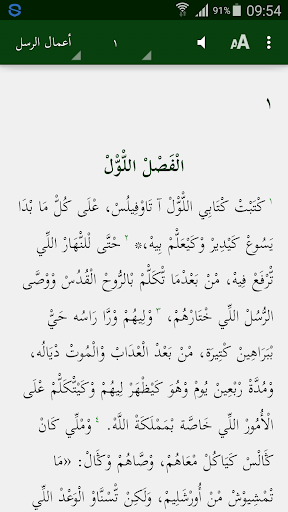 91% 09:54
أعمال الرسل ١ AA
١
الْفَصْلْ اللّْوّْلْ
١ كْتَبْتْ كْتَابِي اللّْوّْلْ آ تَاوْفِيلُسْ، عْلَى كُلّْ مَا بْدَا
يَسُوعْ كَيْدِيرْ وْكَيْعَلَّمْ بِيهْ،* ٢ حْتَّى لْلنّْهَارْ اللِّي
تّْرْفَعْ فِيهْ، مْنْ بَعْدْمَا تْكَلّْمْ بْالرُّوحْ الْقُدُسْ وْوَصَّى
الرُّسُلْ اللِّي خْتَارْهُمْ، ٣ وْلِيهُمْ وْرَّا رَاسُه حَيّْ
بْبَرَاهِينْ كْتِيرَة، مْنْ بَعْدْ الْعَدَابْ وَالْمُوتْ دْيَالُه،
وْمُدّْةْ رْبْعِينْ يُومْ وْهُوَ كَيْظْهَرْ لِيهُمْ وْكَيْتّْكَلّْمْ عْلَى
الْأُمُورْ اللِّي خَاصَّة بْمَمْلَكَةْ اللَّهْ. ٤ وْمْلِّي كَانْ
كَالْسْ كَيَاكُلْ مْعَاهُمْ، وْصَّاهُمْ وْݣَالْ: «مَا
تْمْشِيوْشْ مْنْ أُورْشَلِيمْ، وَلَكِنْ تّْسْنَّاوْ الْوَعْدْ اللِّي